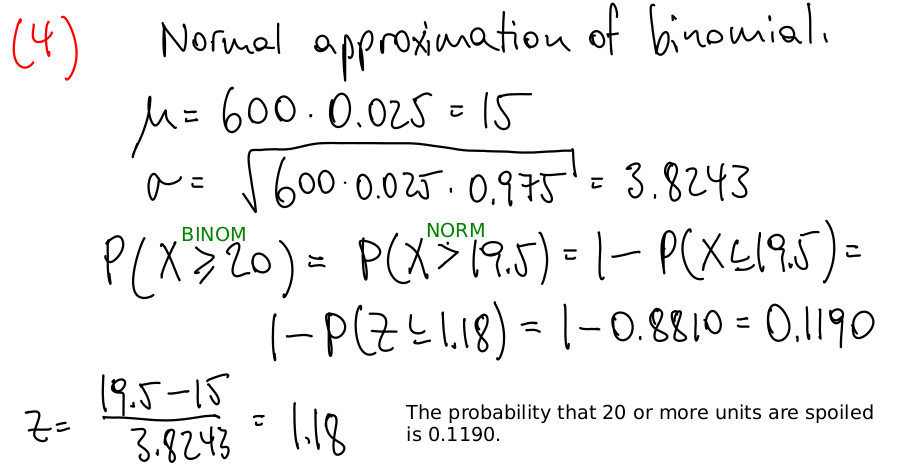 (4) Normal approximation of binomial.
μ = 600 · 0.025 = 15
σ = √600 · 0.025 · 0.975 = 3.8243
BINOM NORM
P(X ≥ 20) = P(X > 19.5) = 1 − P(X ≤ 19.5) =
1 − P(Z ≤ 1.18) = 1 − 0.8810 = 0.1190
z = 19.5 − 15 / 3.8243 = 1.18
The probability that 20 or more units are spoiled
is 0.1190.